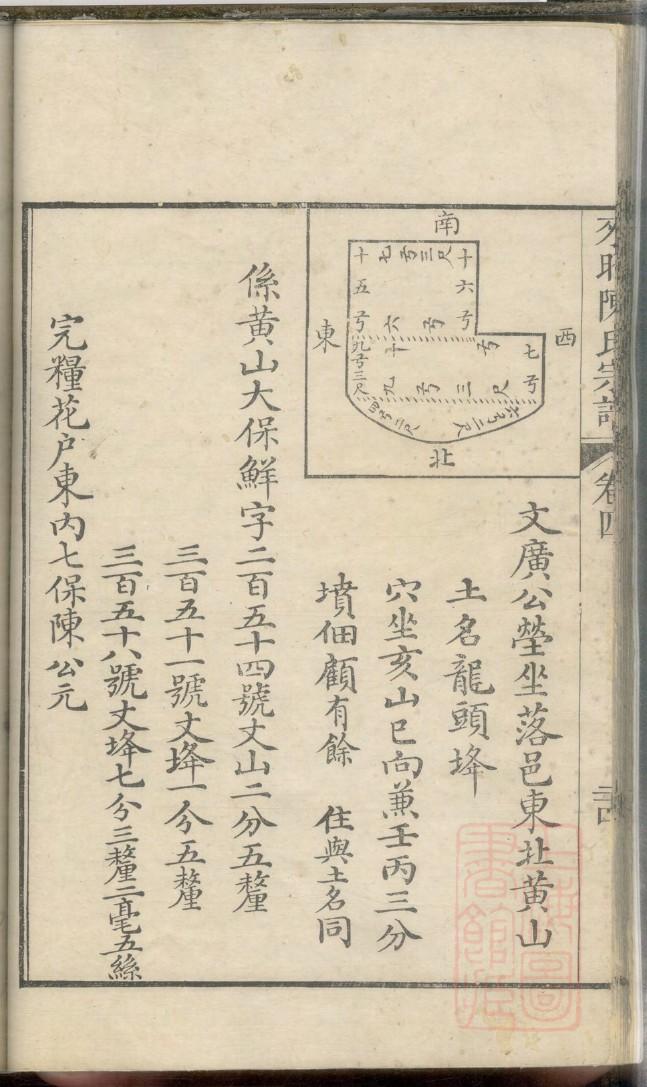 陳氏宗譜
卷四
南
西
東
北
十七弓三尺十
五 六
弓 弓
十六弓
七弓
九弓三尺
十九弓三尺
四弓二尺
六弓二尺
文廣公塋坐落邑東北黃山
土名龍頭埄
穴坐亥山巳向兼壬丙三分
墳佃顧有餘 住與土名同
係黃山大保鮮字二百五十四號丈山二分五釐
三百五十一號丈埄一分五釐
三百五十八號丈埄七分三釐二毫五絲
完糧花戶東內七保陳公元